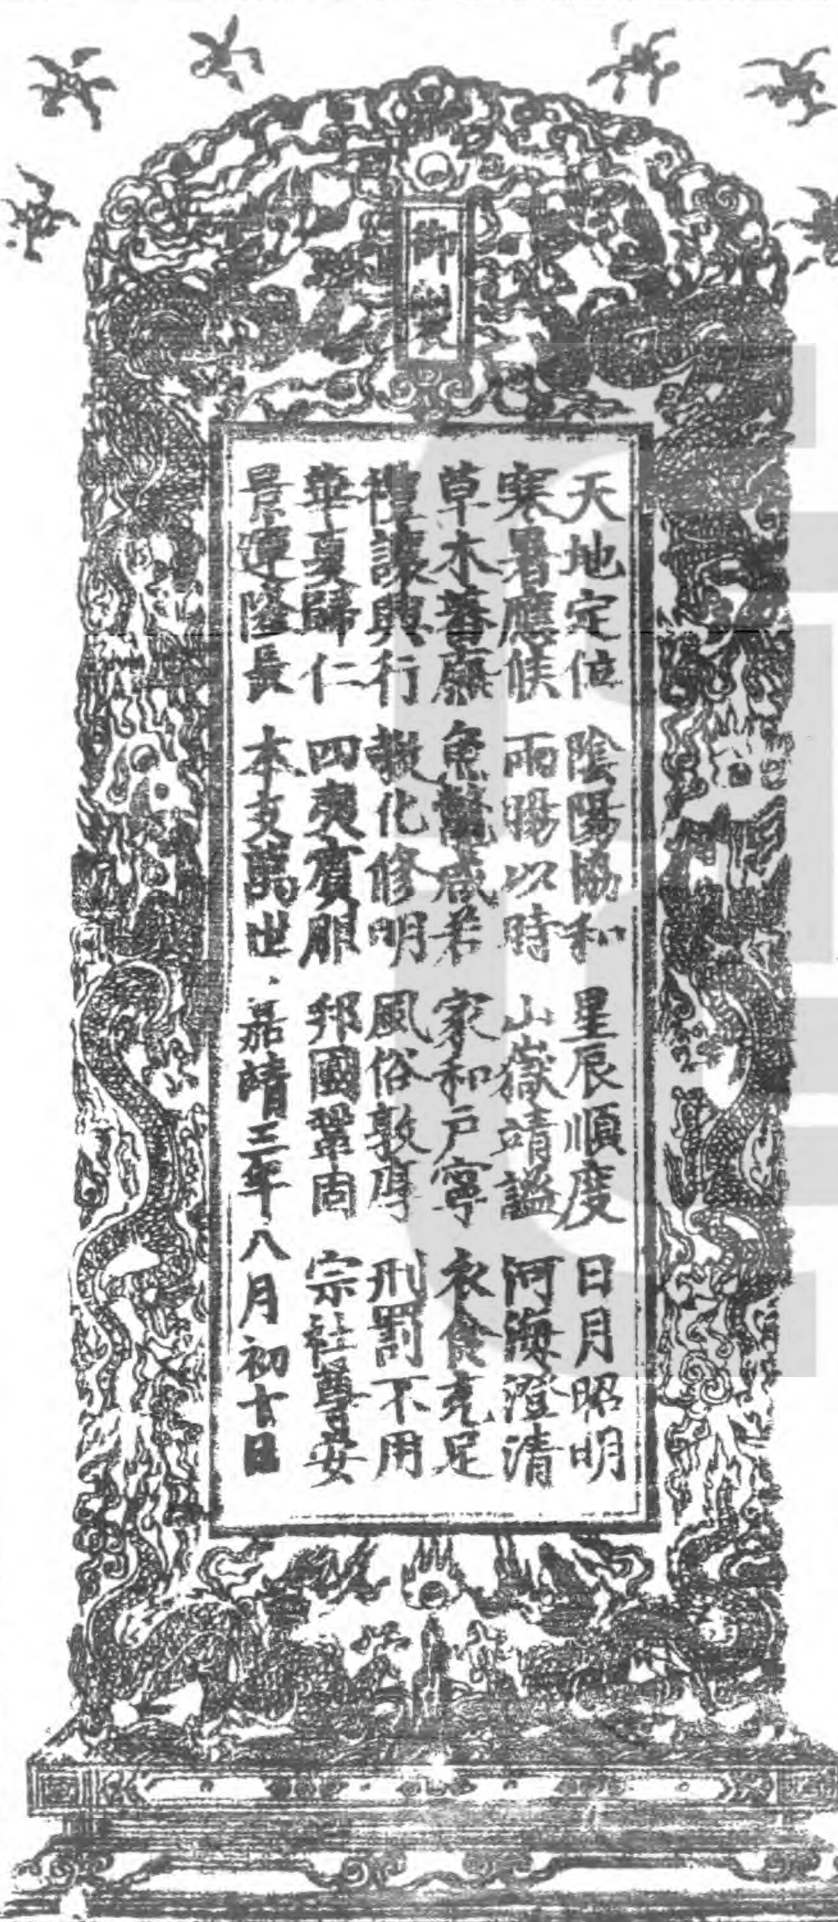 御製
天地定位 陰陽協和 星辰順度 日月昭明
寒暑應候 雨暘以時 山嶽靖謐 河海澄清
草木蕃廡 魚鱉咸若 家和戶寧 衣食充足
禮讓興行 教化修明 風俗敦厚 刑罰不用
華夏歸仁 四夷賓服 邦國鞏固 宗社尊安
景運隆長 本支萬世 嘉靖三年八月初十日